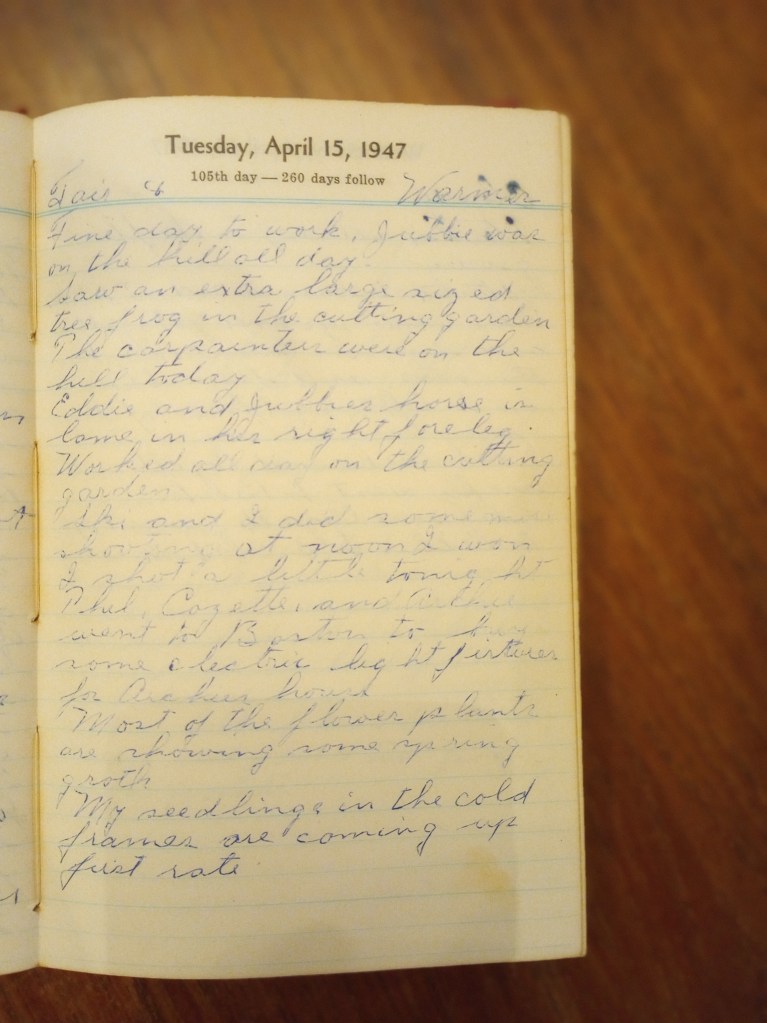 Tuesday, April 15, 1947
105th day — 260 days follow
Fair & Warmer
Fine day to work. Jubbie was
on the hill all day.
Saw an extra large sized
tree frog in the cutting garden
The carpainters were on the
hill today
Eddie and Jubbies horse is
lame in her right foreleg.
Worked all day on the cutting
garden
and I did some
shooting at noon I won
I shot a little tonight
Phil, Cozette, and Archie
went to Boston to buy
some electric light fixtures
for Archies house
Most of the flower plants
are showing some spring
groth
My seedlings in the cold
frames are coming up
first rate.